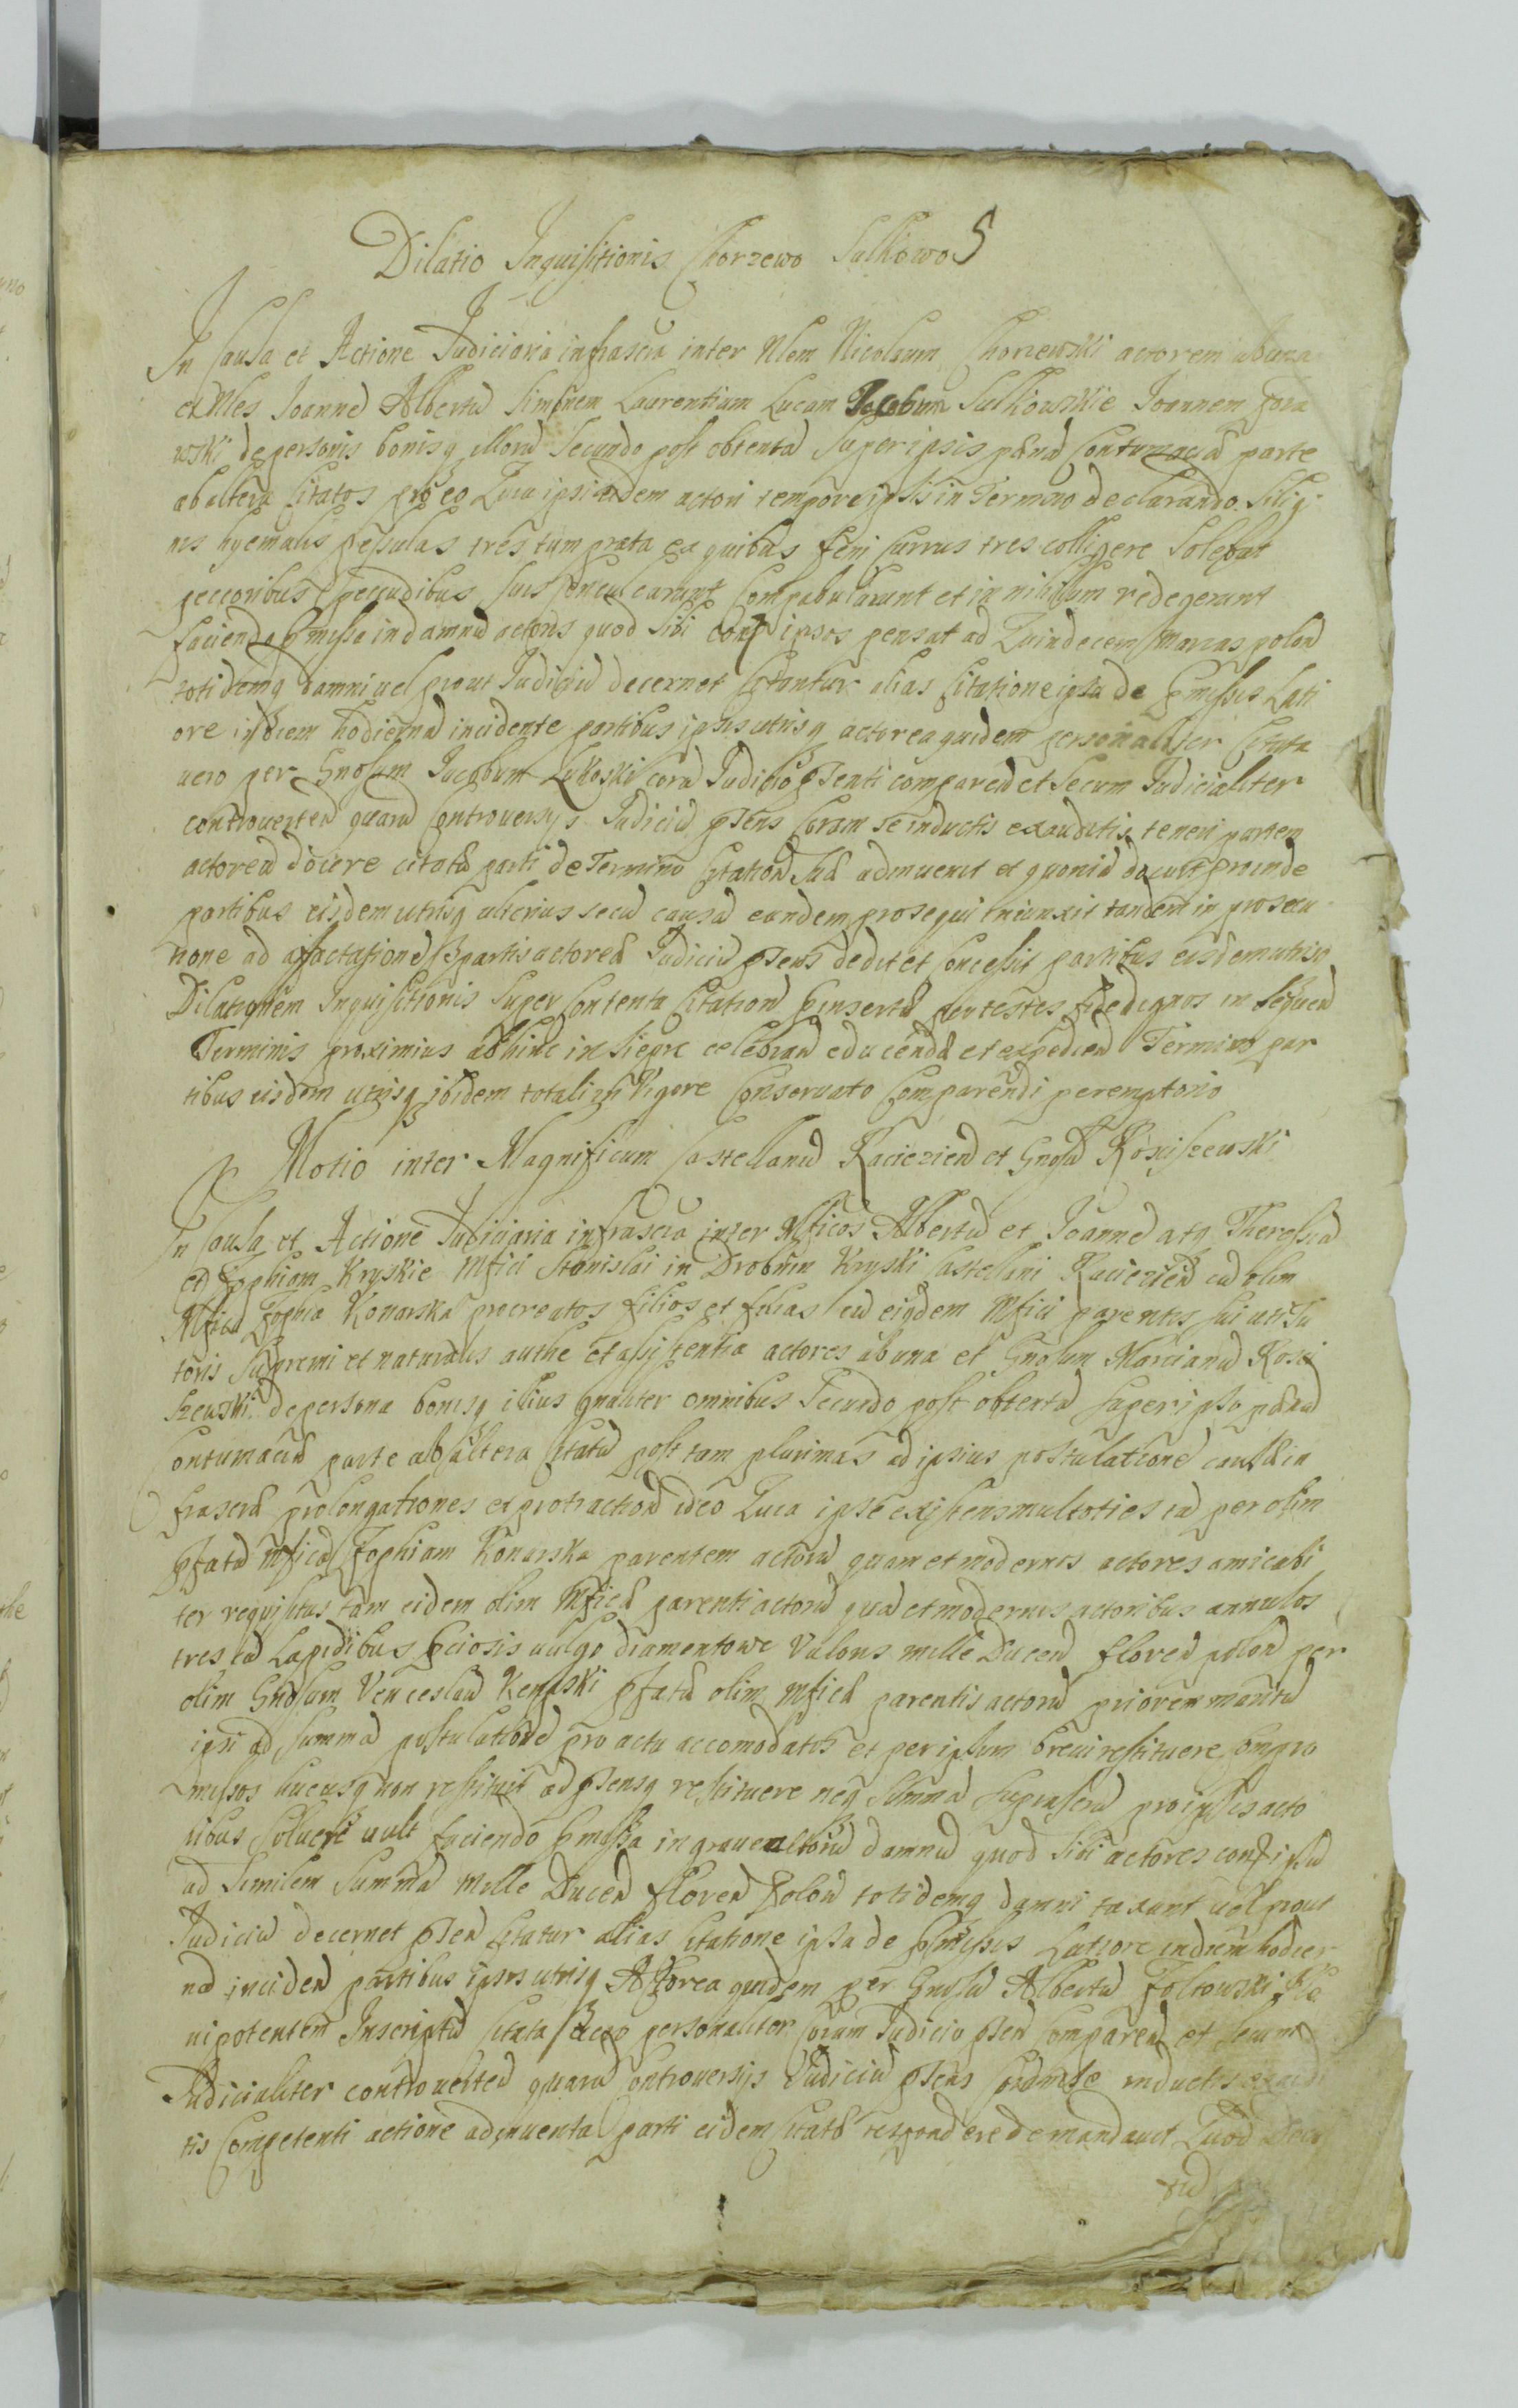 Dilatio Inquisitionis Chorzewo Sulkowo 5
In Causa et Actione Judiciaria infrascra inter Nlem Nicolaum Chorzewski actorem ab una
et Nles Joanne Albertu Simonem Laurentium Lucam Jacobum Sulkowskie Joannem Gora
wski de personis bonisq illoru Secundo post obtenta super ipsis pæna Contumaciæ parte
ab altera Citatos pro eo Quia ipsi eidem actori tempore ipsis in Termino declarando Silig
nis hyemalis tres tum prata ex quibus feni Currus tres colligere Solebat
peccoribus pecudibus suis conculcarunt Compabularunt et in nihilum redegerunt
faciendo pmissa in damnu actoris quod sibi contr ipsos pensat ad Quindecem Marcas polon
totidemq damni uel prout Judiciu decernet Citantur alias Citatione ipsa de pmissis Lati
ore in diem hodierna incidente partibus ipsis utrisq actorea quidem personaliter Citata
uero per Gnosum Jacobum Lukoski cora Judicio psenti comparen et secum Judicialiter
controuerten quaru Controuersys Judiciu psens Coram se inductis exauditis teneri partem
actorea docere citatæ parti de Termino Citation suæ adinuenit et quonia docuit proinde
partibus eisdem utrisq ulterius secu causa eandem prosequi iniunxit tandem in prosecu
tione ad affectatione partis actoreæ Judiciu psens dedit et Concessit partibus eisdem utrisq
Dilationem Inquisitionis super Contenta Citation insertæ per testes fide dignos in sequen
Terminis proximius abhinc in Siepre celebran educendæ et expedien Termino par
tibus eisdem utrisq ibidem totali in Vigore Conservato Comparendi peremptorio
Motio inter Magnificum Castellanu Raciezien et Gnosu Rosciszewski
In Causa et Actione Judiciaria infrascra inter Mficos Albertu et Joanne atq Theressia
et Zophiam Kryskie Mfici Stanislai in Drobnin Kryski Castellani Raciezien cu olim
Mfica Zophia Konarska procreatos filios et filias cu eiqdem Mfici parentis sui uti Tu
toris supremi et naturalis authe et assistentia actores ab una et Gnosum Marcianu Rosci
szewski de persona bonisq illius gnaliter omnibus Secundo post obtenta super ipso pæna
Contumaciæ parte ab altera Citatu post tam plurimas ad ipsius postulatione causæ in
frascræ prolongationes et protraction ideo Quia ipse existens multoties ta per olim
pfata Mfica Zophiam Konarska parentem actoru quam et modernos actores amicabi
ter requisitus tam eidem olim Mficæ parenti actoru qua et modernis actoribus annulos
tres cu Lapidibus pciosis uulgo diamentowe Valoris mille Ducen floren polon per
olim Gnosum Venceslau Kenpski pfatæ olim Mficæ parentis actoru priorem maritu
ipsi ad summa postulatione pro actu accomodatos et per ipsum breui restituere compro
missos hucusq non restituit ad psensq restituere neq summa suprascra pro ipsis acto
ribus soluere uult faciendo pmissa in graue actoru damnu quod sibi actores contr ipsu
ad Similem Summa Mille Ducen floren Polon totidemq damni taxant uel prout
Judiciu decernet psen Citatur alias Citatione ipsa de pmissis Latiore in diem hodier
na inciden partibus ipsis utrisq Actorea quidem per Gnosu Albertu Zoltowski Ple
nipotentem Inscriptu Citata Uero personaliter Coram Judicio psen Comparen et secum
Judicialiter controuerten quaru controuersijs Judiciu psens Coram se inductis exaudi
tis Competenti actione adinuenta parti eidem Citatæ respondere demandauit Quod